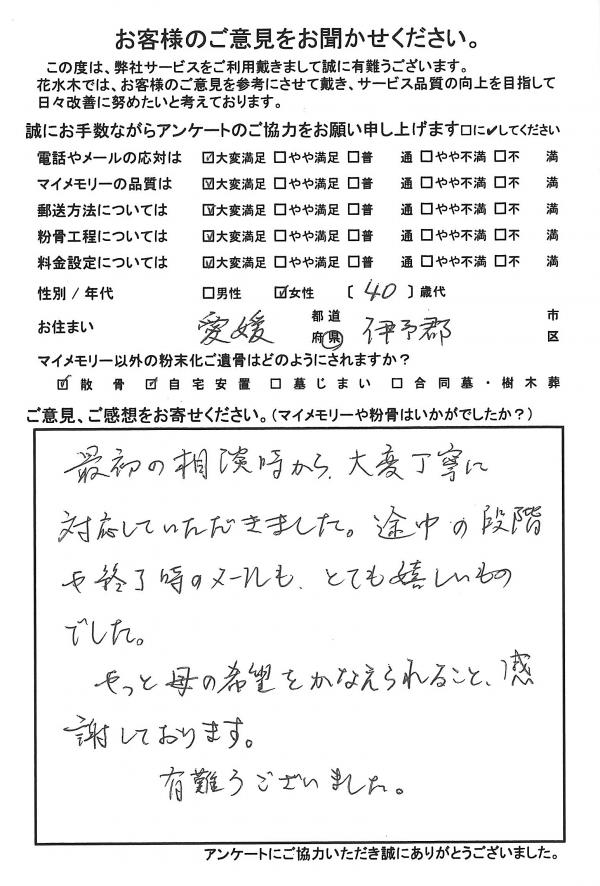 お客様のご意見をお聞かせください。
この度は、弊社サービスをご利用戴きまして誠に有難うございます。
花水木では、お客様のご意見を参考にさせて戴き、サービス品質の向上を目指して
日々改善に努めたいと考えております。
誠にお手数ながらアンケートのご協力をお願い申し上げます□に✔してください
電話やメールの応対は ☑大変満足 □やや満足 □普 通 □やや不満 □不 満
マイメモリーの品質は ☑大変満足 □やや満足 □普 通 □やや不満 □不 満
郵送方法については ☑大変満足 □やや満足 □普 通 □やや不満 □不 満
粉骨工程については ☑大変満足 □やや満足 □普 通 □やや不満 □不 満
料金設定については ☑大変満足 □やや満足 □普 通 □やや不満 □不 満
性別 / 年代 □男性 ☑女性 〔 40 〕歳代
お住まい 愛媛 都道府県 伊予郡 市区
マイメモリー以外の粉末化ご遺骨はどのようにされますか?
☑散骨 ☑自宅安置 □墓じまい □合同墓・樹木葬
ご意見、ご感想をお寄せください。(マイメモリーや粉骨はいかがでしたか?)
最初の相談時から、大変丁寧に
対応していただきました。途中の段階
や終了時のメールも、とても嬉しいもの
でした。
やっと母の希望をかなえられること、感
謝しております。
有難うございました。
アンケートにご協力いただき誠にありがとうございました。